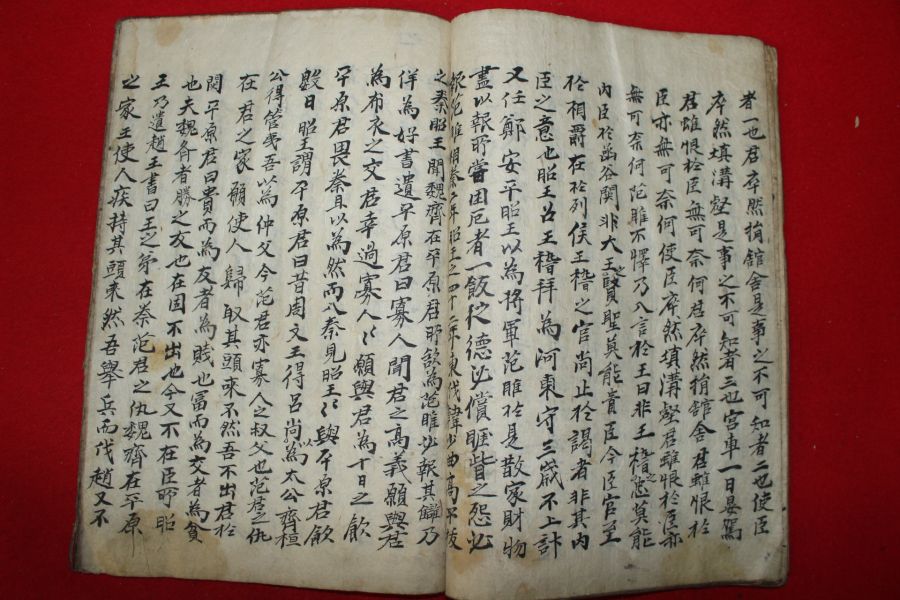 者一也君卒然捐舘舍是事之不可知者二也使臣
卒然填溝壑是事之不可知者三也宮車一日晏駕
君雖恨於臣無可奈何君卒然捐舘舍君雖恨於
臣亦無可奈何使臣卒然填溝壑君雖恨於臣亦
無可奈何范雎不懌乃入言於王曰非王稽之忠莫能
內臣於函谷関非大王之賢聖莫能貴臣今臣官至
於相爵在於列侯王稽之官尚止於謁者非其內
臣之意也昭王召王稽拜為河東守三歲不上計
又任鄭安平昭王以為將軍范雎於是散家財物
盡以報所甞困厄者一飯之德必償睚眥之怨必
報范雎相秦二年昭王之四十二年東伐韓少曲高平拔
之秦昭王聞魏齊在平原君所欲為范雎必報其讎乃
佯為好書遺平原君曰寡人聞君之高義願與君
為布衣之交君幸過寡人々願與君為十日之飲
平原君畏秦且以為然而入秦見昭王々與平原君飲
數日昭王謂平原君曰昔周文王得呂尚為太公齊桓
公得管夷吾以為仲父今范君亦寡人之叔父也范君之仇
在君之家願使人歸取其頭來不然吾不出君於
関平原君曰貴而為友者為賤也富而為交者為貧
也夫魏齊者勝之友也在固不出也今又不在臣所昭
王乃遺趙王書曰王之弟在秦范君之仇魏齊在平原
之家王使人疾持其頭來然吾舉兵而伐趙又不